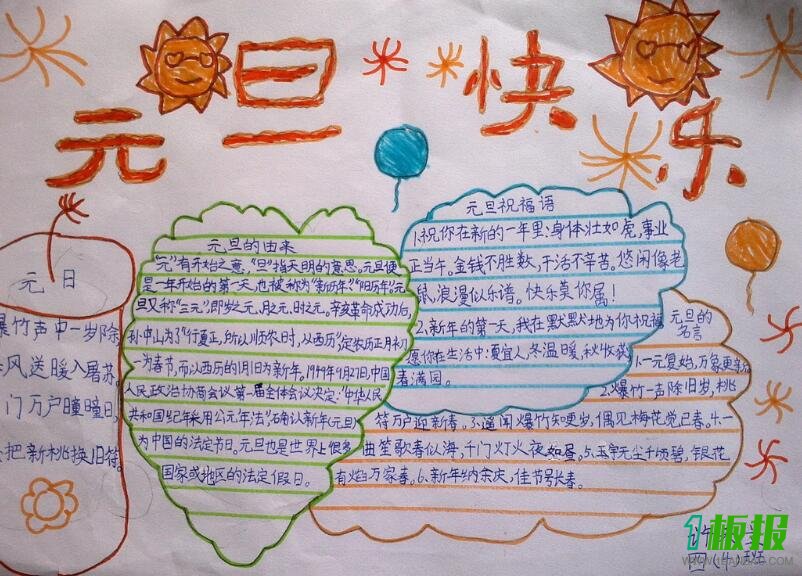 元旦快乐
元日
爆竹声中一岁除
风送暖入屠苏
门万户曈曈日,
把新桃换旧符
元旦的由来
"元"有开始之意,"旦"指天明的意思。元旦便
是一年开始的第一天,也被称为"新历年""阳历年"元
旦又称"三元",即岁之元,月之元,时之元。辛亥革命成功后,
孙中山为了"行夏正,所以顺农时,从西历"定农历正月初
一为春节,而以西历的1月1日为新年。1949年9月27日,中国
人民政治协商会议第一届全体会议决定:"中华人民
共和国纪年采用公元年法"确认新年(元旦)
为中国的法定节日。元旦也是世界上很多
国家或地区的法定假日。
元旦祝福语
1.祝你在新的一年里:身体壮如虎,事业
正当午。金钱不胜数,干活不辛苦。悠闲像老
鼠,浪漫似乐谱。快乐美你属!
2.新年的第一天,我在默默地为你祝福
愿你在生活中:夏宜人,冬温暖,秋收获
春满园。
元旦的
名言
1.一元复始,万象更新
2.爆竹一声除旧岁,桃
符万户迎新春。3.遥闻爆竹知更岁,偶见梅花觉已春。4.一
曲笙歌春似海,千门灯火夜如昼。5.玉宇无尘千顷碧,银花
有焰万家春。6.新年纳余庆,佳节号长春。
四(4)班
1板报